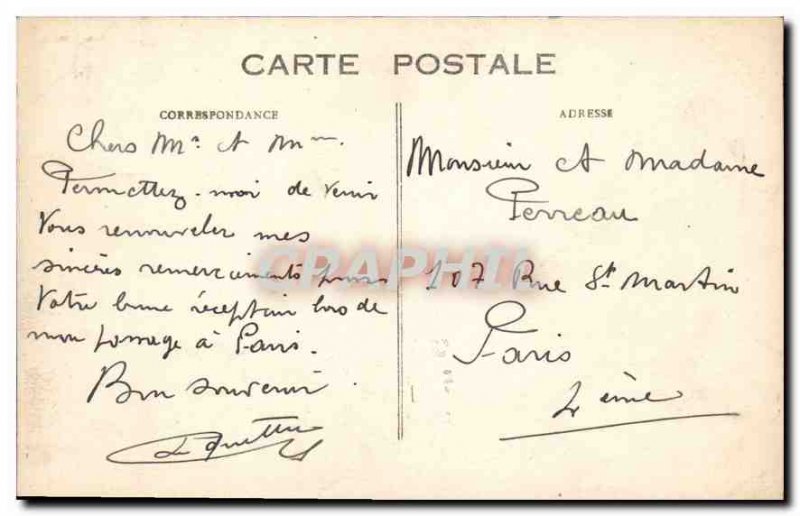 CARTE POSTALE
CORRESPONDANCE
Chers Mr et Mme
Permettez-moi de venir
Vous renouveler mes
sincères remerciements pour
Votre bonne réception lors de
mon passage à Paris.
Bon souvenir
ADRESSE
Monsieur et Madame
Perreau
107 Rue St Martin
Paris
4 ème
CPAPHIL